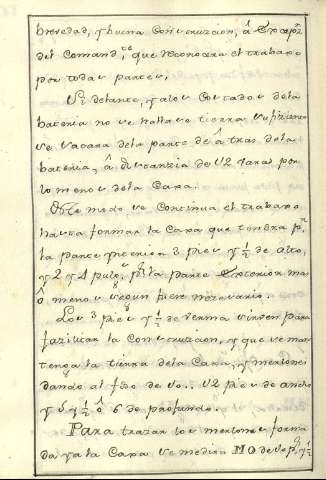 brevedad, y buena Construczion, â Excepz.
del Comand.te que reconozera el trabaxo
por todas partes,
Si delante, y alos Costados dela
bateria no se halla se tierra sufiziente
se sacara dela parte de â tras dela
bateria, â distanzia de 12 varas por
lo menos dela Caxa.
Este modo, se Continua el trabaxo
hasta formar la Caxa que tendra p.r
la parte ynterior 3 pies y ½ de alto,
y 2 y 4 pulg.s p.r la parte Exterior ma
ô, menos segun fuere nezesario.
Los 3 pies y ½ de verma sirven para
fazilitar la Construczion, y que se man
tenga la tierra dela Caxa, y merlones
dando al foso de 10.. 12 pies de ancho
y 5 y ½ ô 6 de profundo.
Para trazar los merlones forma
da ya la Caxa se medira MO de